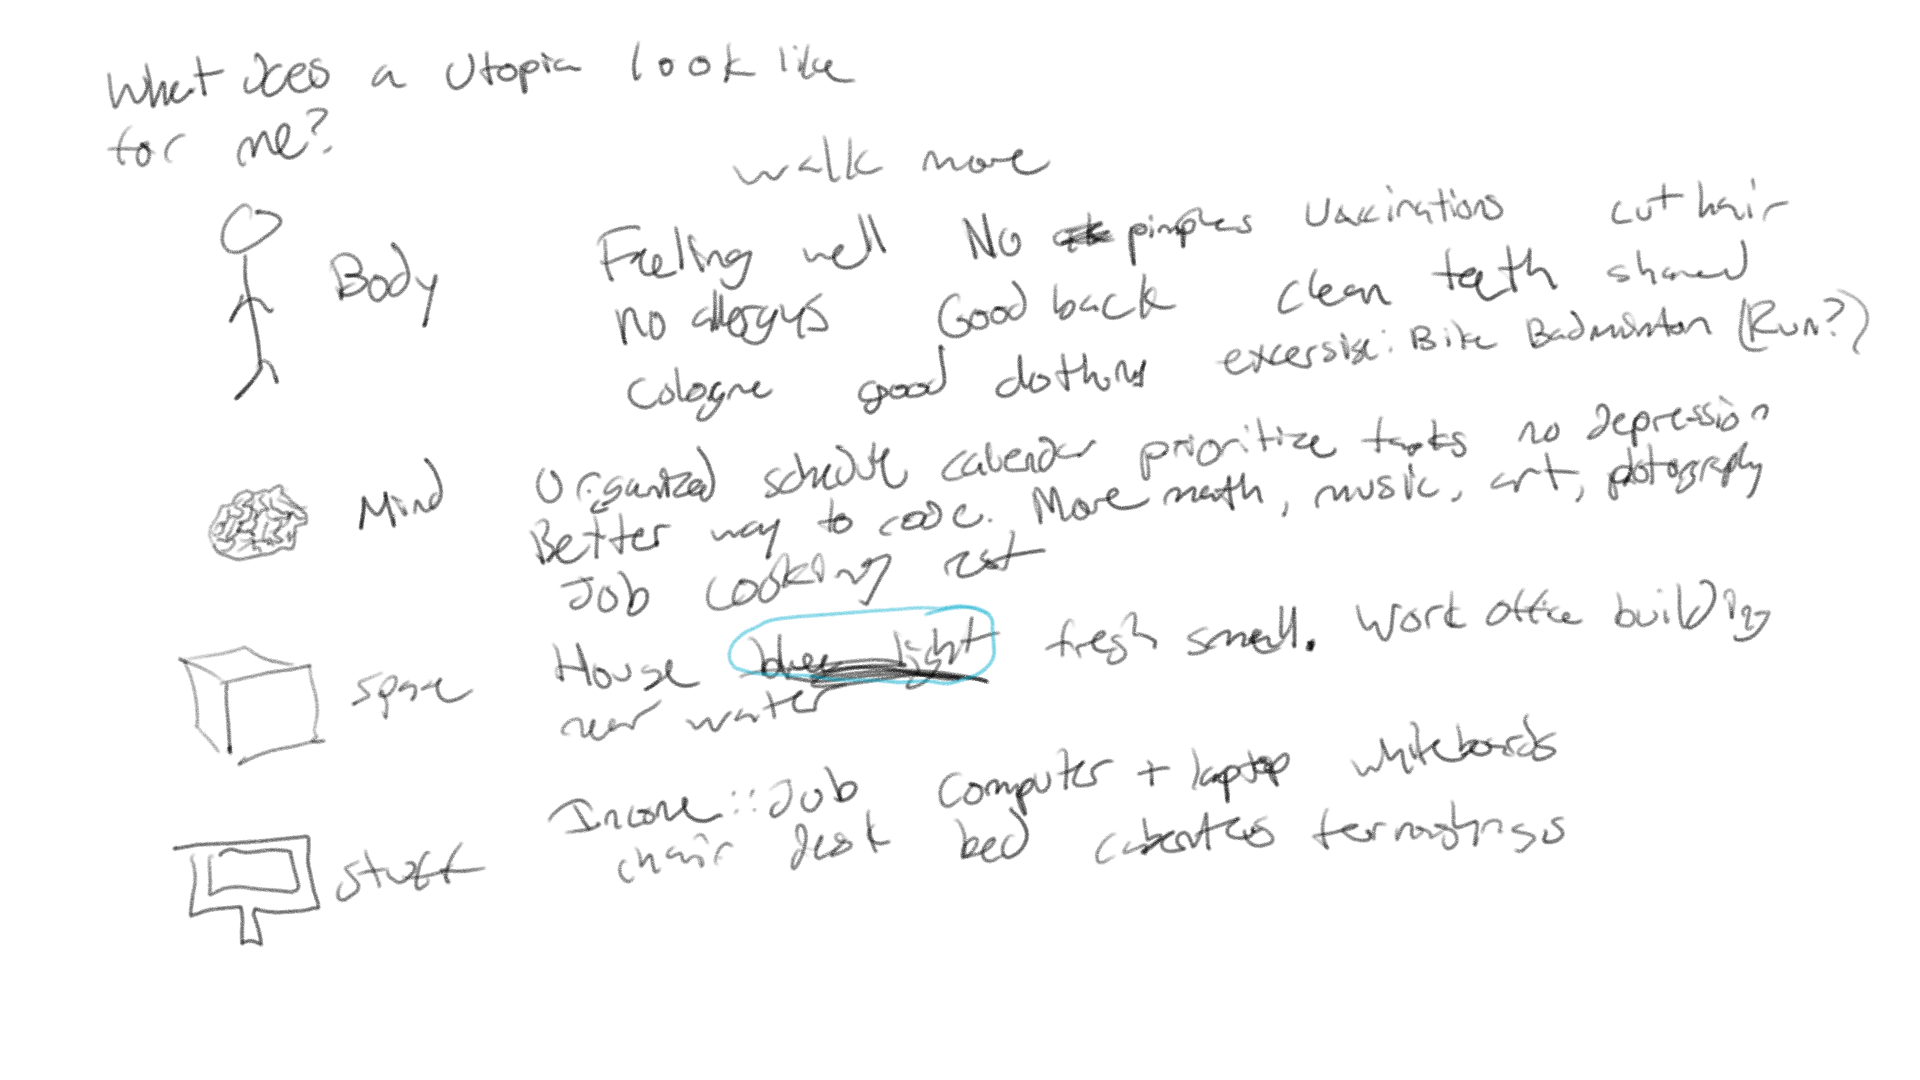 What does a Utopia look like
for me?
walk more
Body
Feeling well No pimples Vaccinations cut hair
no allergys Good back clean teeth shaved
Cologne good clothing excersise: Bike Badminton (Run?)
Mind
Organized schedule calender prioritize tasks no depression
Better way to code. More math, music, art, photography
Job cooking rest
space
House blue light fresh smell. Work office building
near water
stuff
Income::Job Computer + laptop whiteboards
chair desk bed